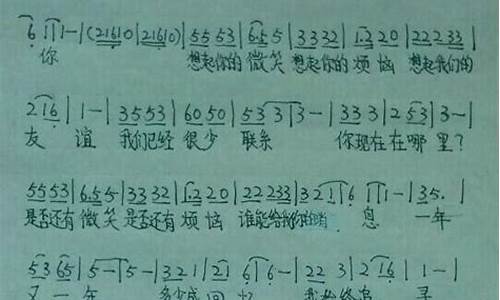 6 1 1 1 - | (2 1 6 1 0 | 2 1 6 1 0) | 5 5 5 3 | 6. 5 5 | 3 3 3 2 | 1. 2 2 0 | 2 2 2 3 3 |
你 想起你的 微笑 想起你的 烦恼 想起我们的
2 1 6 | 1 - | 3 5 5 3 | 6 0 5 0 | 5 3 3 | 3 - | 3 3 3 | 2 5 3 | 3 - |
友 谊 我们已经 很少 联系 你现在在哪里?
5 5 5 3 | 6. 5 5 | 3 3 3 2 | 1. 2 2 0 | 2 2 2 3 3 | 3 2 1 | 6 1 1 | 1 - | 3 5. |
是否还有 微笑 是否还有 烦恼 谁能给我你的消 息 一年
5 3 6 5 | 5 - | 5 - | 3 2 1 | 2 1 | 6 1 6 - | 2 2 3 | 2 1 6 | 1 - |
又一年 多少